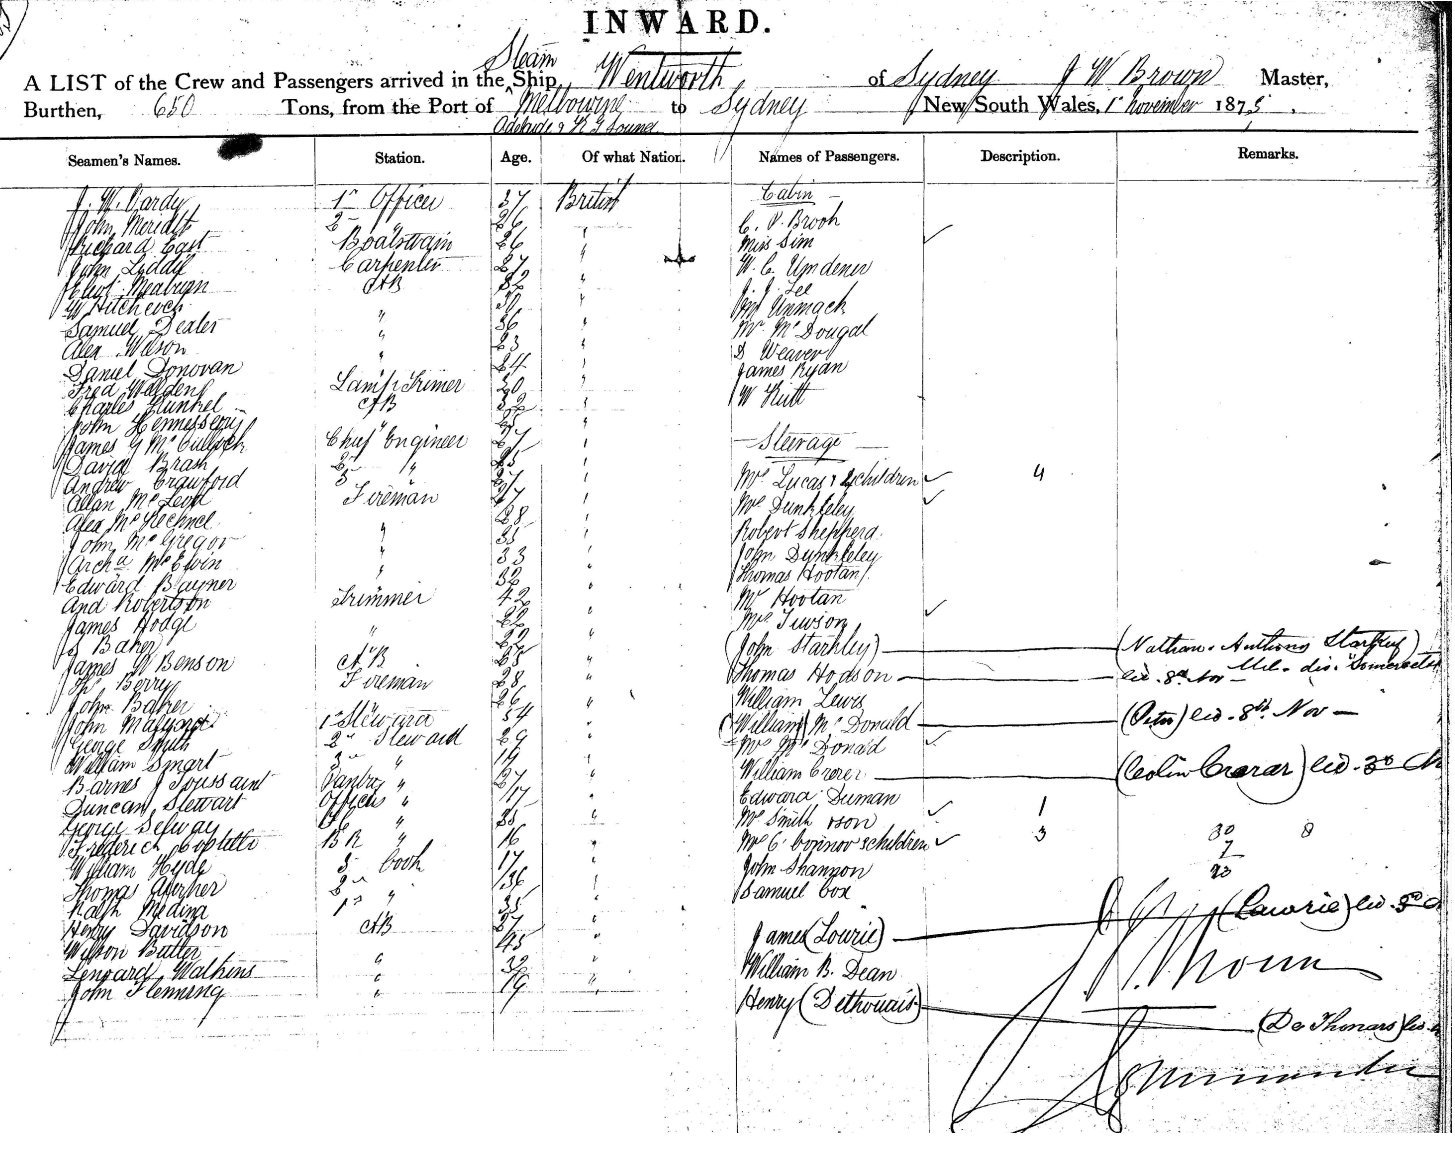 INWARD.
Steam
A LIST of the Crew and Passengers arrived in the Ship Wentworth of Sydney J W Brown Master,
Burthen, 650 Tons, from the Port of Melbourne to Sydney New South Wales, 1st November 1875.
Adelaide & K G Sound
Seamen's Names. Station. Age. Of what Nation. Names of Passengers. Description. Remarks.
J. W. Vardy 1st Officer 37 British Cabin
John Meridith 2nd " 26 " C. V. Brook
Richard East Boatswain 26 " Miss Sim
John Liddy Carpenter 27 " W. C. Umdener
Meaburn AB 32 " J. J. Lee
W Hitchcock 30 " Unmack
Samuel Dexter " 36 " Mr McDougal
Alex Wilson " 23 " D Weaver
Daniel Donovan " 24 " James Ryan
Fred Walden Lamp Trimer 30 " W Hutt
Charles Kunkel AB 32 "
John Hennessery "
James G McCulloch Chief Engineer 27 " Steerage
David Brash 2 " 25 "
Andrew Crawford 3 " 27 " Mrs Lucas & 4 children 4
Allan McLeod Fireman 27 " Mrs Dunkleley
Alex McKechnel " 28 " Robert Shepperd
John McGregor " 35 " John Dunkleley
Archd McEwin " 33 " Thomas Hootan
Edward Bayner " 32 "
And Robertson Trimmer 42 " Mr Hootan
James Hodge " 22 " Mrs Tuson
Js Baker " 22 " (John Starkley) (Nathan. Anthony Starkey)
James W Benson AB 25 " Thomas Hodson led. 8th Nov
Thos Berry Fireman 28 " William Lewis
John Baker 26 " (William) McDonald (Peter) led. 8th. Nov
John 1st Steward 54 " Mrs McDonald
George Smith 2nd Steward 29 " William Crorer (Colin Crerar) led. 30
William Smart 3rd " 19 " Edward Duman
Barnes J Toussaint Pantry " 27 " Mrs Smith & son 1
Duncan Stewart Officers " 17 " Mrs C. Connor & children 3 30 8
George Selway " 35 " John Shannon 7
Frederick BR " 16 " Samuel Cox 23
William Hyde 3 Cook 17 "
Thomas 2nd " 36 "
Ralph Medina 1st " 35 "
Henry Davidson AB 27 " James (Lourie) (Lawrie) led.
Wilson Butter " 45 " William B. Dean
Lennard Watkins " 32 " Henry (Dethouais) (De Thouars) led
John Flemming " 19 "
J W Brown